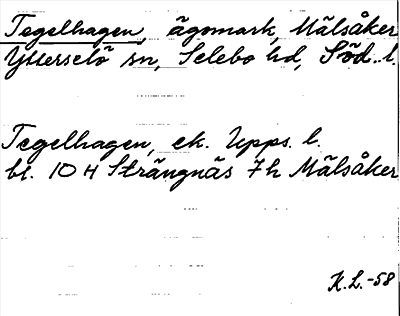 Tegelhagen, ägomark, Mälsåker
Ytterselö sn, Selebo hd, Söd. l.
Tegelhagen, ek. Upps. l.
bl. 10 H Strängnäs 7h Mälsåker
K.L.-58